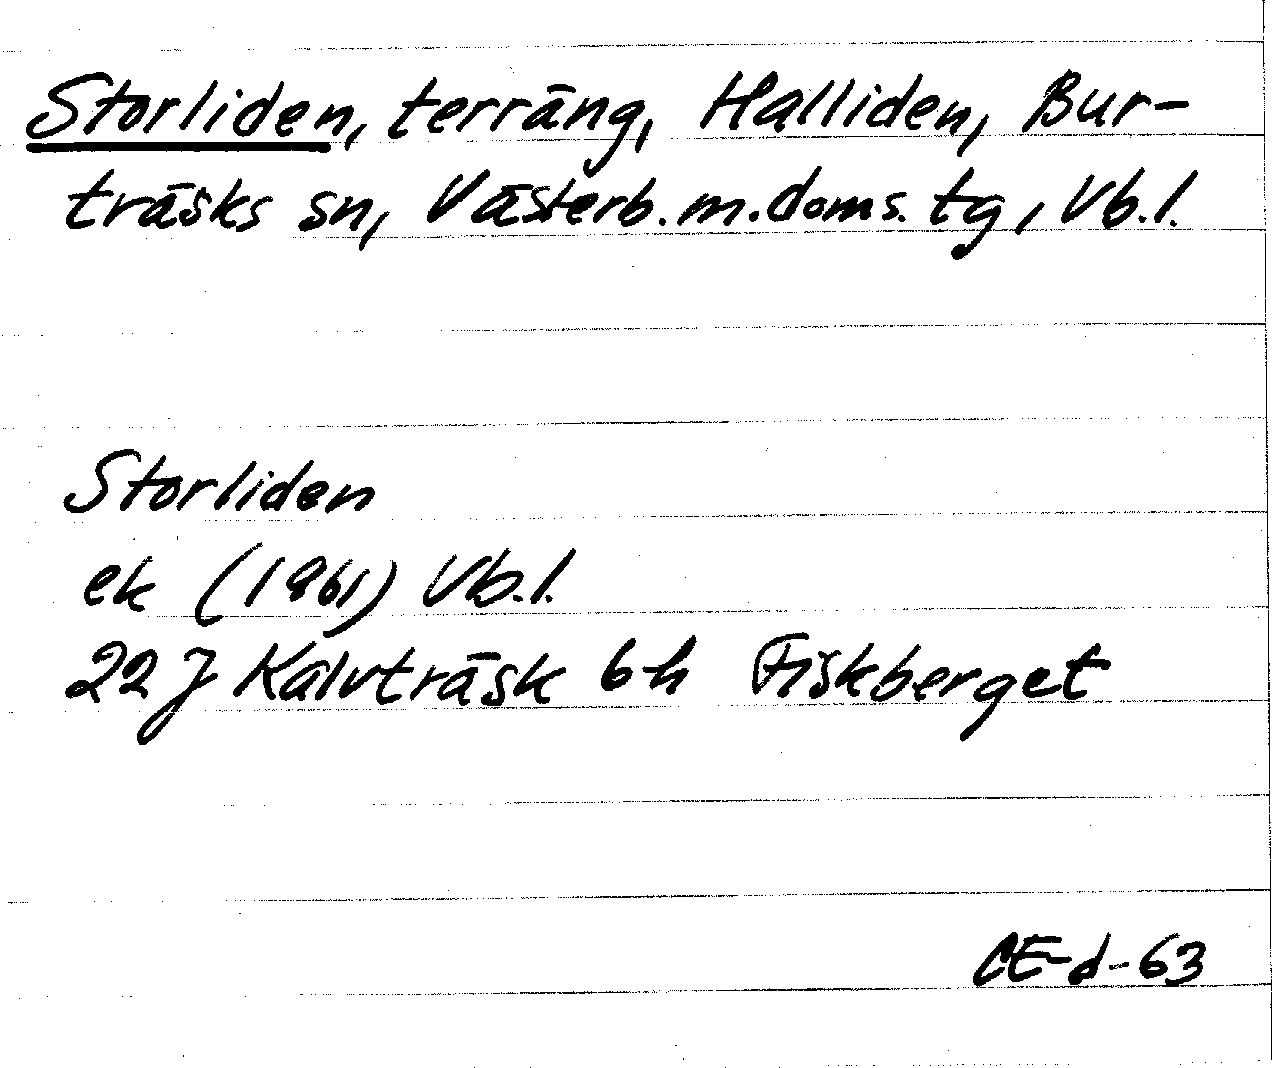 Storliden, terräng, Halliden, Bur-
träsks sn, Västerb. m. doms. tg, Vb.l.
Storliden
ek (1961) Vb.l.
22 J Kalvträsk 6h Fiskberget
CE-d-63